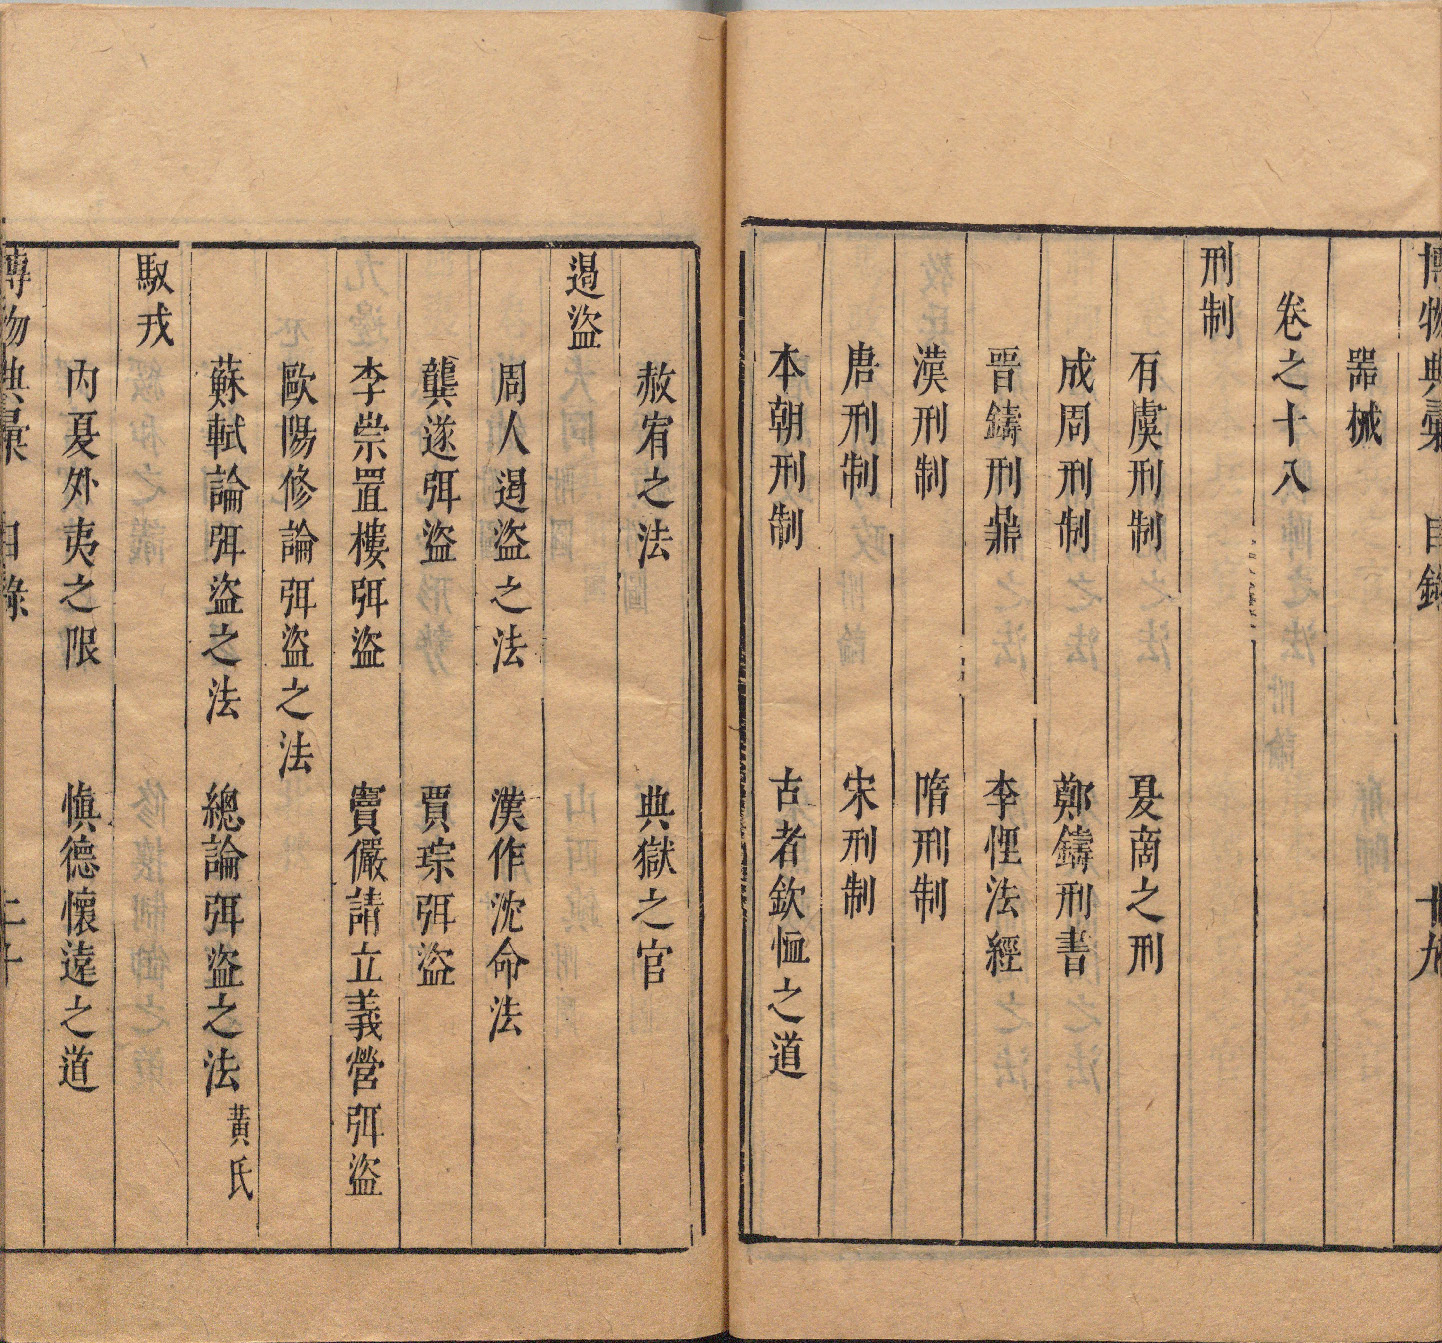 博物典彙 目錄 廿九
器械
卷之十八
刑制
有虞刑制 夏商之刑
成周刑制 鄭鑄刑書
晉鑄刑鼎 李悝法經
漢刑制 隋刑制
唐刑制 宋刑制
本朝刑制 古者欽恤之道
赦宥之法 典獄之官
遏盜
周人遏盜之法 漢作沈命法
龔遂弭盜 賈琮弭盜
李崇置樓弭盜 竇儼請立義營弭盜
歐陽修論弭盜之法
蘇軾論弭盜之法 總論弭盜之法 黃氏
馭戎
內夏外夷之限 慎德懷遠之道
博物典彙 目錄